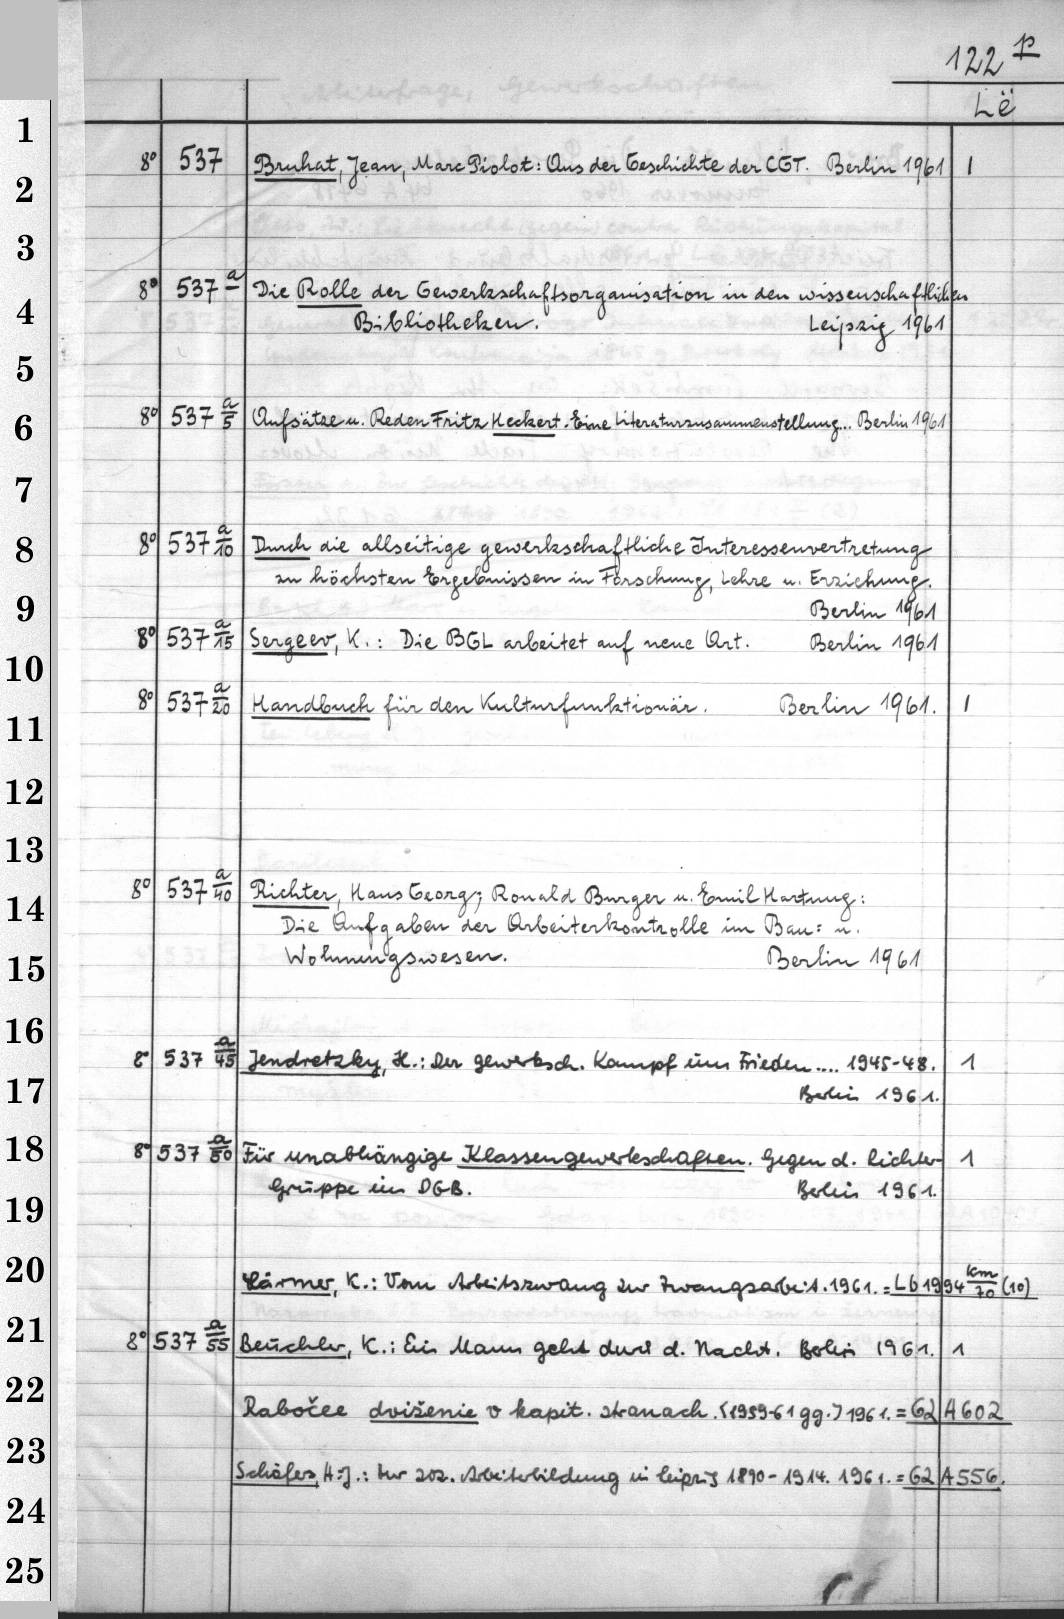 122 p
Lë
8° 537 Bruhat, Jean, Marc Piolot: Aus der Geschichte der CGT. Berlin 1961 1
8° 537 a Die Rolle der Gewerkschaftsorganisation in den wissenschaftlichen
Bibliotheken. Leipzig 1961
8° 537 a/5 Aufsätze u. Reden Fritz Heckert. Eine Literaturzusammenstellung... Berlin 1961
8° 537 a/10 Durch die allseitige gewerkschaftliche Interessenvertretung
zu höchsten Ergebnissen in Forschung, Lehre u. Erziehung.
Berlin 1961
8° 537 a/15 Sergeev, K.: Die BGL arbeitet auf neue Art. Berlin 1961
8° 537 a/20 Handbuch für den Kulturfunktionär. Berlin 1961. 1
8° 537 a/40 Richter, Hans Georg; Ronald Burger u. Emil Hartung:
Die Aufgaben der Arbeiterkontrolle im Bau= u.
Wohnungswesen. Berlin 1961
8° 537 a/45 Jendretzky, H.: Der gewerksch. Kampf um Frieden.... 1945-48. 1
Berlin 1961.
8° 537 a/50 Für unabhängige Klassengewerkschaften. Gegen d. Richter- 1
Gruppe im DGB. Berlin 1961.
Lärmer, K.: Vom Arbeitszwang zur Zwangsarbeit. 1961. = Lb 1994 km/70 (10)
8° 537 a/55 Beuchler, K.: Ein Mann geht durch d. Nacht. Berlin 1961. 1
Rabočee dviženie v kapit. stranach. (1959-61 gg.) 1961. = 62 A 602
Schäfer, H-J.: Zur soz. Arbeiterbildung in Leipzig 1890-1914. 1961. = 62 A 556.
1
2
3
4
5
6
7
8
9
10
11
12
13
14
15
16
17
18
19
20
21
22
23
24
25